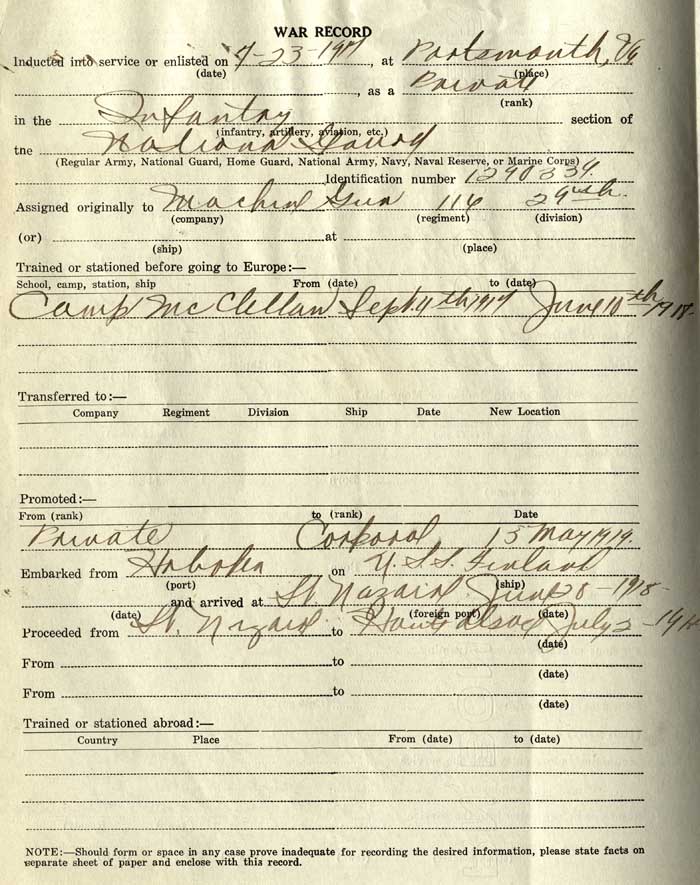 WAR RECORD
Inducted into service or enlisted on 7-23-1917, at Portsmouth, Va
(date) (place)
, as a Private
(rank)
in the Infantry section of
(infantry, artillery, aviation, etc.)
tne National Guard
(Regular Army, National Guard, Home Guard, National Army, Navy, Naval Reserve, or Marine Corps)
Identification number 1290339.
Assigned originally to Machine Gun 116 29th
(company) (regiment) (division)
(or) at
(ship) (place)
Trained or stationed before going to Europe:—
School, camp, station, ship From (date) to (date)
Camp McClellan Sept. 11th 1917 June 10th 1918-
Transferred to:—
Company Regiment Division Ship Date New Location
Promoted:—
From (rank) to (rank) Date
Private Corporal 15 May 1919.
Embarked from Hoboken on U.S.S. Finland
(port) (ship)
and arrived at St Nazaire June 28-1918-
(date) (foreign port) (date)
Proceeded from St. to Haute Alsace July 2-
(date)
From to
(date)
From to
(date)
Trained or stationed abroad:—
Country Place From (date) to (date)
NOTE:—Should form or space in any case prove inadequate for recording the desired information, please state facts on
separate sheet of paper and enclose with this record.